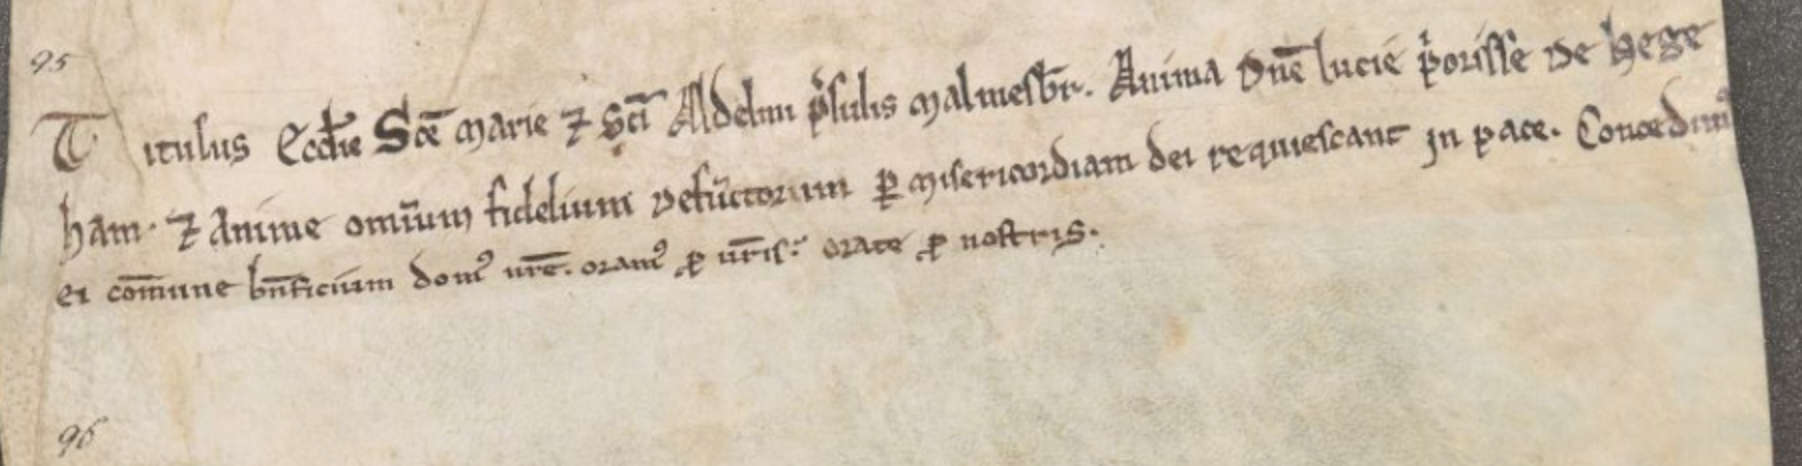 95
Titulus Eccl̄ie Sc̄e Marie ⁊ Sc̄i Aldelmi p̄sulis Malmesbr̄. Anima dn̄e lucie p'orisse de hege
ham. ⁊ Anime omīum fidelium defūctorum ꝑ misericordiam dei requiescant In pace. Concedimꝰ
ei com̄une bn̄ficium domꝰ ur̄e. oramꝰ ꝓ ur̄is. orate ꝓ nostris.
96